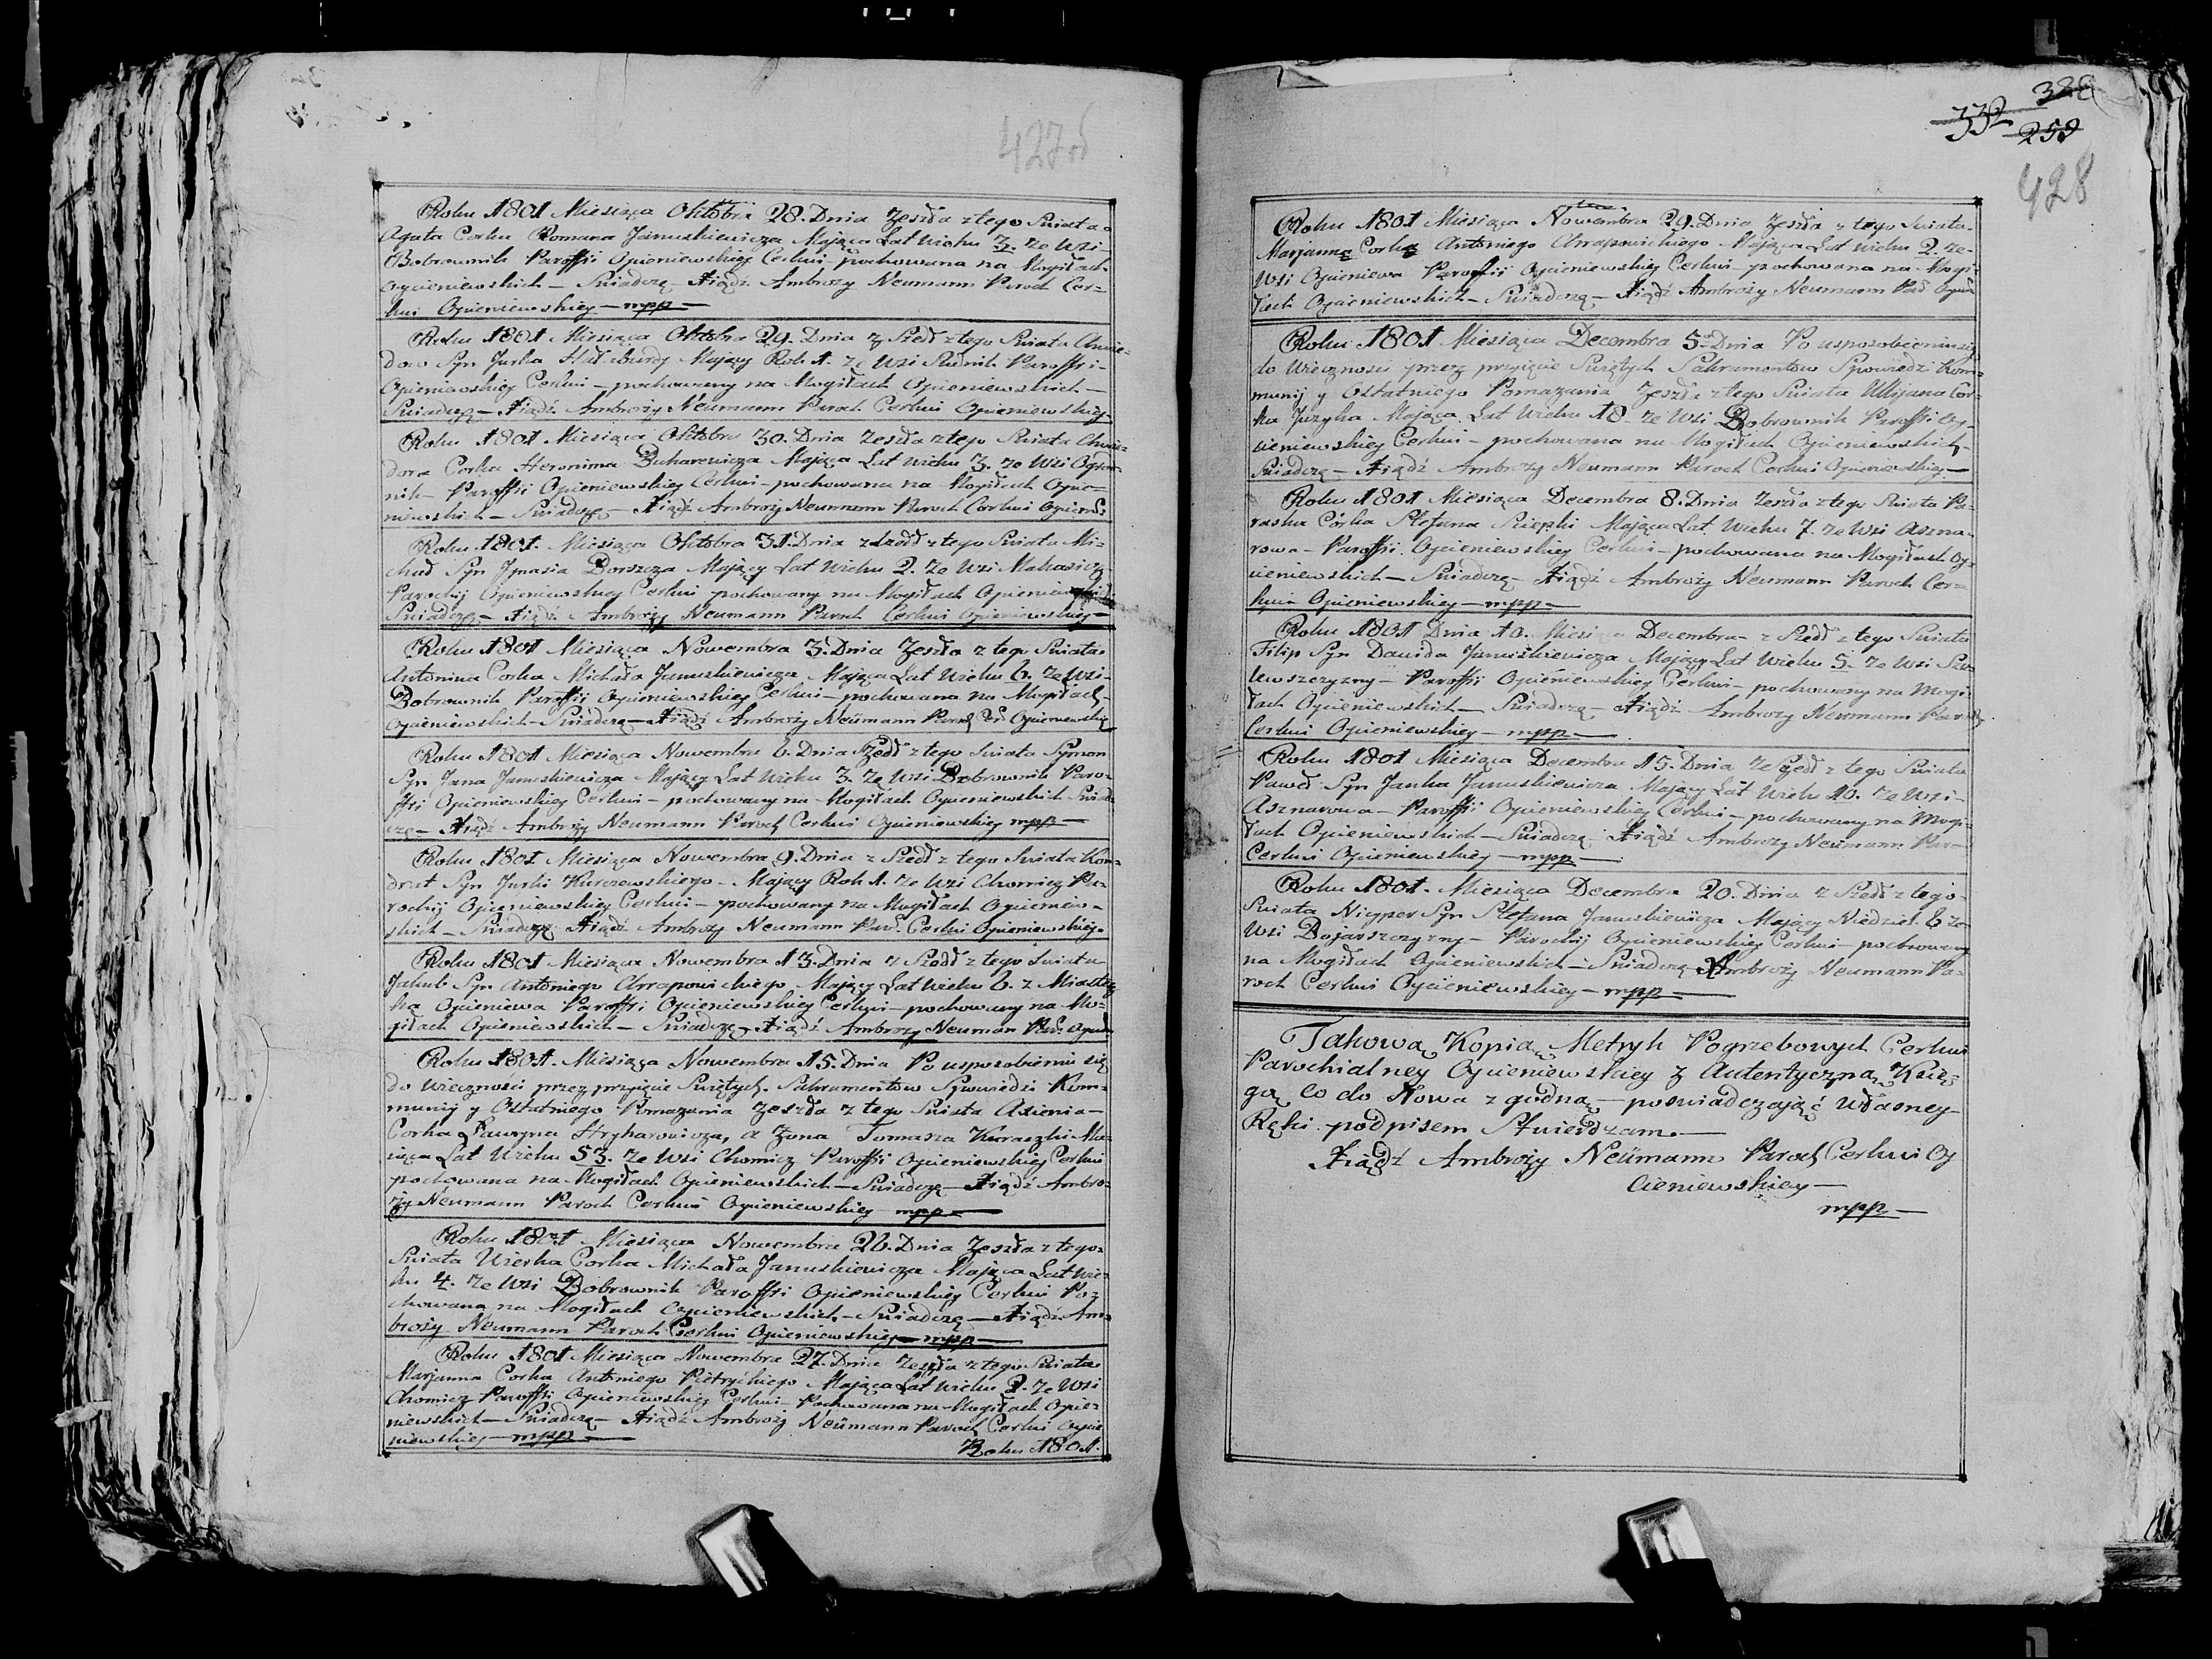 427 od
Roku 1801 Miesiąca Oktobra 28. Dnia Zeszła z tego Swiata
Agata Corka Romana Januszkiewicza Maiąca Lat wieku 3. ze Wsi
Bobrownik Paroffii Ogicieniewskiey Cerkwi pochowana na Mogiłach
Ogicieniewskich – Swiadczę – Xiądz Ambroży Neumann Paroch Cer=
kwi Ogicieniewskiey – mpp –
Roku 1801 Miesiąca Oktobra 29. Dnia z Szedł z tego Swiata
dor Syn Jurka Mający Rok 1. ze Wsi Paroffii
Ogicieniewskiey Cerkwi – pochowany na Mogiłach Ogicieniewskich –
Swiadczę – Xiądz Ambroży Neumann Paroch Cerkwi Ogicieniewskiey
Roku 1801 Miesiąca Oktobra 30. Dnia Zeszła z tego Swiata Chwie=
dora Corka Heronima Bukarewicza Maiąca Lat wieku 3. ze Wsi
nik – Paroffii Ogicieniewskiey Cerkwi – pochowana na Mogiłach Ogicie=
niewskich – Swiadczę – Xiądz Ambroży Neumann Paroch Cerkwi
Roku 1801. Miesiąca Oktobra 31. Dnia z Szedł z tego Swiata Mi=
chał Syn Ignasia Borszcza Mający Lat wieku 2. ze Wsi
Parochij Ogicieniewskiey Cerkwi pochowany na Mogiłach
Swiadczę – Xiądz Ambroży Neumann Paroch Cerkwi Ogicieniewskiey –
Roku 1801 Miesiąca Nowembra 3. Dnia Zeszła z tego Swiata
Antonina Corka Michała Januszkiewicza Maiąca Lat wieku 6. ze Wsi
Bobrownik Paroffij Ogicieniewskiey Cerkwi – pochowana na Mogiłach
Ogicieniewskich – Swiadczę – Xiądz Ambroży Neümann Paroch Ogicieniewskiey
Roku 1801 Miesiąca Nowembra 6. Dnia Szedł z tego Swiata Symon
Syn Jana Januszkiewicza Mający Lat wieku 3. ze Wsi Bobrownik Paro=
ffii Ogicieniewskiey Cerkwi – pochowany na Mogiłach Ogicieniewskich Swiad=
czę – Xiądz Ambroży Neumann Paroch Cerkwi Ogicieniewskiey mpp –
Roku 1801 Miesiąca Nowembra 9. Dnia z Szedł z tego Swiata Kon=
drat Syn Jurki Kurczewskiego – Mający Rok 1. ze Wsi Chomicz Pa=
rochij Ogicieniewskiey Cerkwi – pochowany na Mogiłach Ogicieniew=
skich – Swiadczę Xiądz Ambroży Neumann Par. Cerkwi Ogicieniewskiey
Roku 1801 Miesiąca Nowembra 13. Dnia z Szedł z tego Swiata
Jakub Syn Antoniego Chrapowickiego Mający Lat wieku 6. z Miastecz
ka Ogicieniewa Paroffii Ogicieniewskiey Cerkwi – pochowany na Mo=
giłach Ogicieniewskich – Swiadczę Xiądz Ambroży Neuman Par.
Roku 1801. Miesiąca Nowembra 15. Dnia Po usposobieniu się
do wieczności przez przyięcie Swiętych Sakramentow Spowiedzi Kom=
munij y Ostatniego Pomazania Zeszła z tego Swiata Axienia –
Corka Ławryna Hryharowicza, a Zona Tomasza Ma=
iąca Lat wieku 53. ze Wsi Chomicz Paroffij Ogicieniewskiey Cerkwi
pochowana na Mogiłach Ogicieniewskich – Swiadczę – Xiądz Ambro=
ży Neumann Paroch Cerkwi Ogicieniewskiey – mpp –
Roku 1801 Miesiąca Nowembra 26. Dnia Zeszła z tego
Swiata Wierka Corka Michała Januszkiewicza Maiąca Lat wie=
ku 4. ze Wsi Bobrownik Paroffii Ogicieniewskiey Cerkwi Po=
chowana na Mogiłach Ogicieniewskich – Swiadczę – Xiądz Am=
broży Neumann Paroch Cerkwi Ogicieniewskiey – mpp –
Roku 1801 Miesiąca Nowembra 27. Dnia Zeszła z tego Swiata
Marjanna Corka Antoniego Pietryckiego Maiąca Lat wieku 2. ze Wsi
Chomicz Paroffii Ogicieniewskiey Cerkwi – Pochowana na Mogiłach Ogicie=
niewskich – Swiadczę – Xiądz Ambroży Neümann Paroch Cerkwi Ogicie
niewskiey – mpp –
Roku 1801.
328
332
259
428
Roku 1801 Miesiąca Nowembra 29. Dnia Zeszła z tego Swiata
Marjanna Corka Antoniego Chrapowickiego Maiąca Lat wieku 2. ze
Wsi Ogicieniewa Parochij Ogicieniewskiey Cerkwi – pochowana na Mogi=
łach Ogicieniewskich – Swiadczę – Xiądz Ambroży Neümann Par.
Roku 1801 Miesiąca Decembra 5. Dnia Po usposobieniu się
do wieczności przez przyięcie Swiętych Sakramentow Spowiedzi Kom=
munij y Ostatniego Pomazania Zeszła z tego Swiata Ullijana Cor=
ka Juzyka Maiąca Lat wieku 18. ze Wsi Bobrownik Paroffii Ogi=
cieniewskiey Cerkwi – pochowana na Mogiłach Ogicieniewskich –
Swiadczę – Xiądz Ambroży Neumann Paroch Cerkwi Ogicieniewskiey –
Roku 1801 Miesiąca Decembra 8. Dnia Zeszła z tego Swiata Pa=
raska Córka Stefana Maiąca Lat wieku 7. ze Wsi Aszna=
rowa – Paroffii Ogicieniewskiey Cerkwi – pochowana na Mogiłach Ogi=
cieniewskich – Swiadczę – Xiądz Ambroży Neumann Paroch Cer=
kwi Ogicieniewskiey – mpp –
Roku 1801 Dnia 10. Miesiąca Decembra – z Szedł z tego Swiata
Filip Syn Dawida Januszkiewicza Mający Lat wieku 5. ze Wsi
lewszczyzny – Paroffii Ogicieniewskiey Cerkwi – pochowany na Mogi=
łach Ogicieniewskich – Swiadczę – Xiądz Ambroży Neumann Paroch
Cerkwi Ogicieniewskiey – mpp –
Roku 1801 Miesiąca Decembra 15. Dnia ze Szedł z tego Swiata
Paweł Syn Janka Januszkiewicza Mający Lat wieku 10. ze Wsi
Asznarowa – Paroffii Ogicieniewskiey Cerkwi – pochowany na Mogi=
łach Ogicieniewskich – Swiadczę Xiądz Ambroży Neumann Par=
Cerkwi Ogicieniewskiey – mpp –
Roku 1801. Miesiąca Decembra 20. Dnia z Szedł z tego
Swiata Nicyper Syn Stefana Januszkiewicza Mający Niedziel 6 ze
Wsi Bojarszczyzny – Parochij Ogicieniewskiey Cerkwi – pochowany
na Mogiłach Ogicieniewskich – Swiadczę X Ambroży Neumann Pa=
roch Cerkwi Ogicieniewskiey – mpp –
Takową Kopią Metryk Pogrzebowych Cerkwi
Parochialney Ogicieniewskiey z Autentyczną Xsię=
gą co do słowa zgodną – poswiadczając własney
Ręki podpisem Stwierdzam. –
Xiądz Ambroży Neümann Paroch Cerkwi Ogi
cieniewskiey –
mpp –